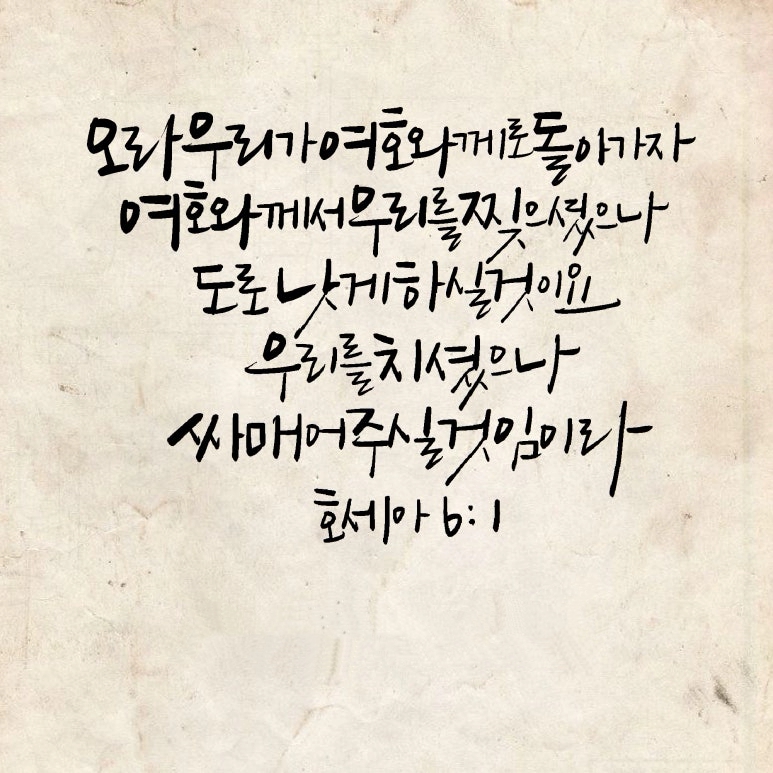 오라 우리가 여호와께로 돌아가자
여호와께서 우리를 찢으셨으나
도로 낫게 하실 것이요
우리를 치셨으나
싸매어 주실 것임이라
호세아 6:1